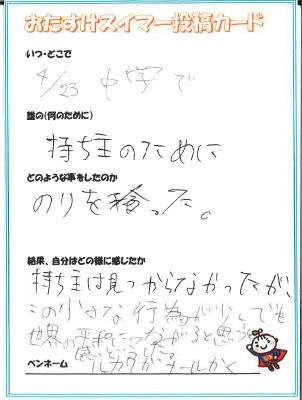 おたすけスイマー投稿カード
いつ・どこで
4/23 中学で
誰の(何のために)
持ち主のために
どのような事をしたのか
のりを拾った。
結果、自分はどの様に感じたか
持ち主は見つからなかったが、
この小さな行為が少しでも
世界の平和につながると思うと
ペンネーム